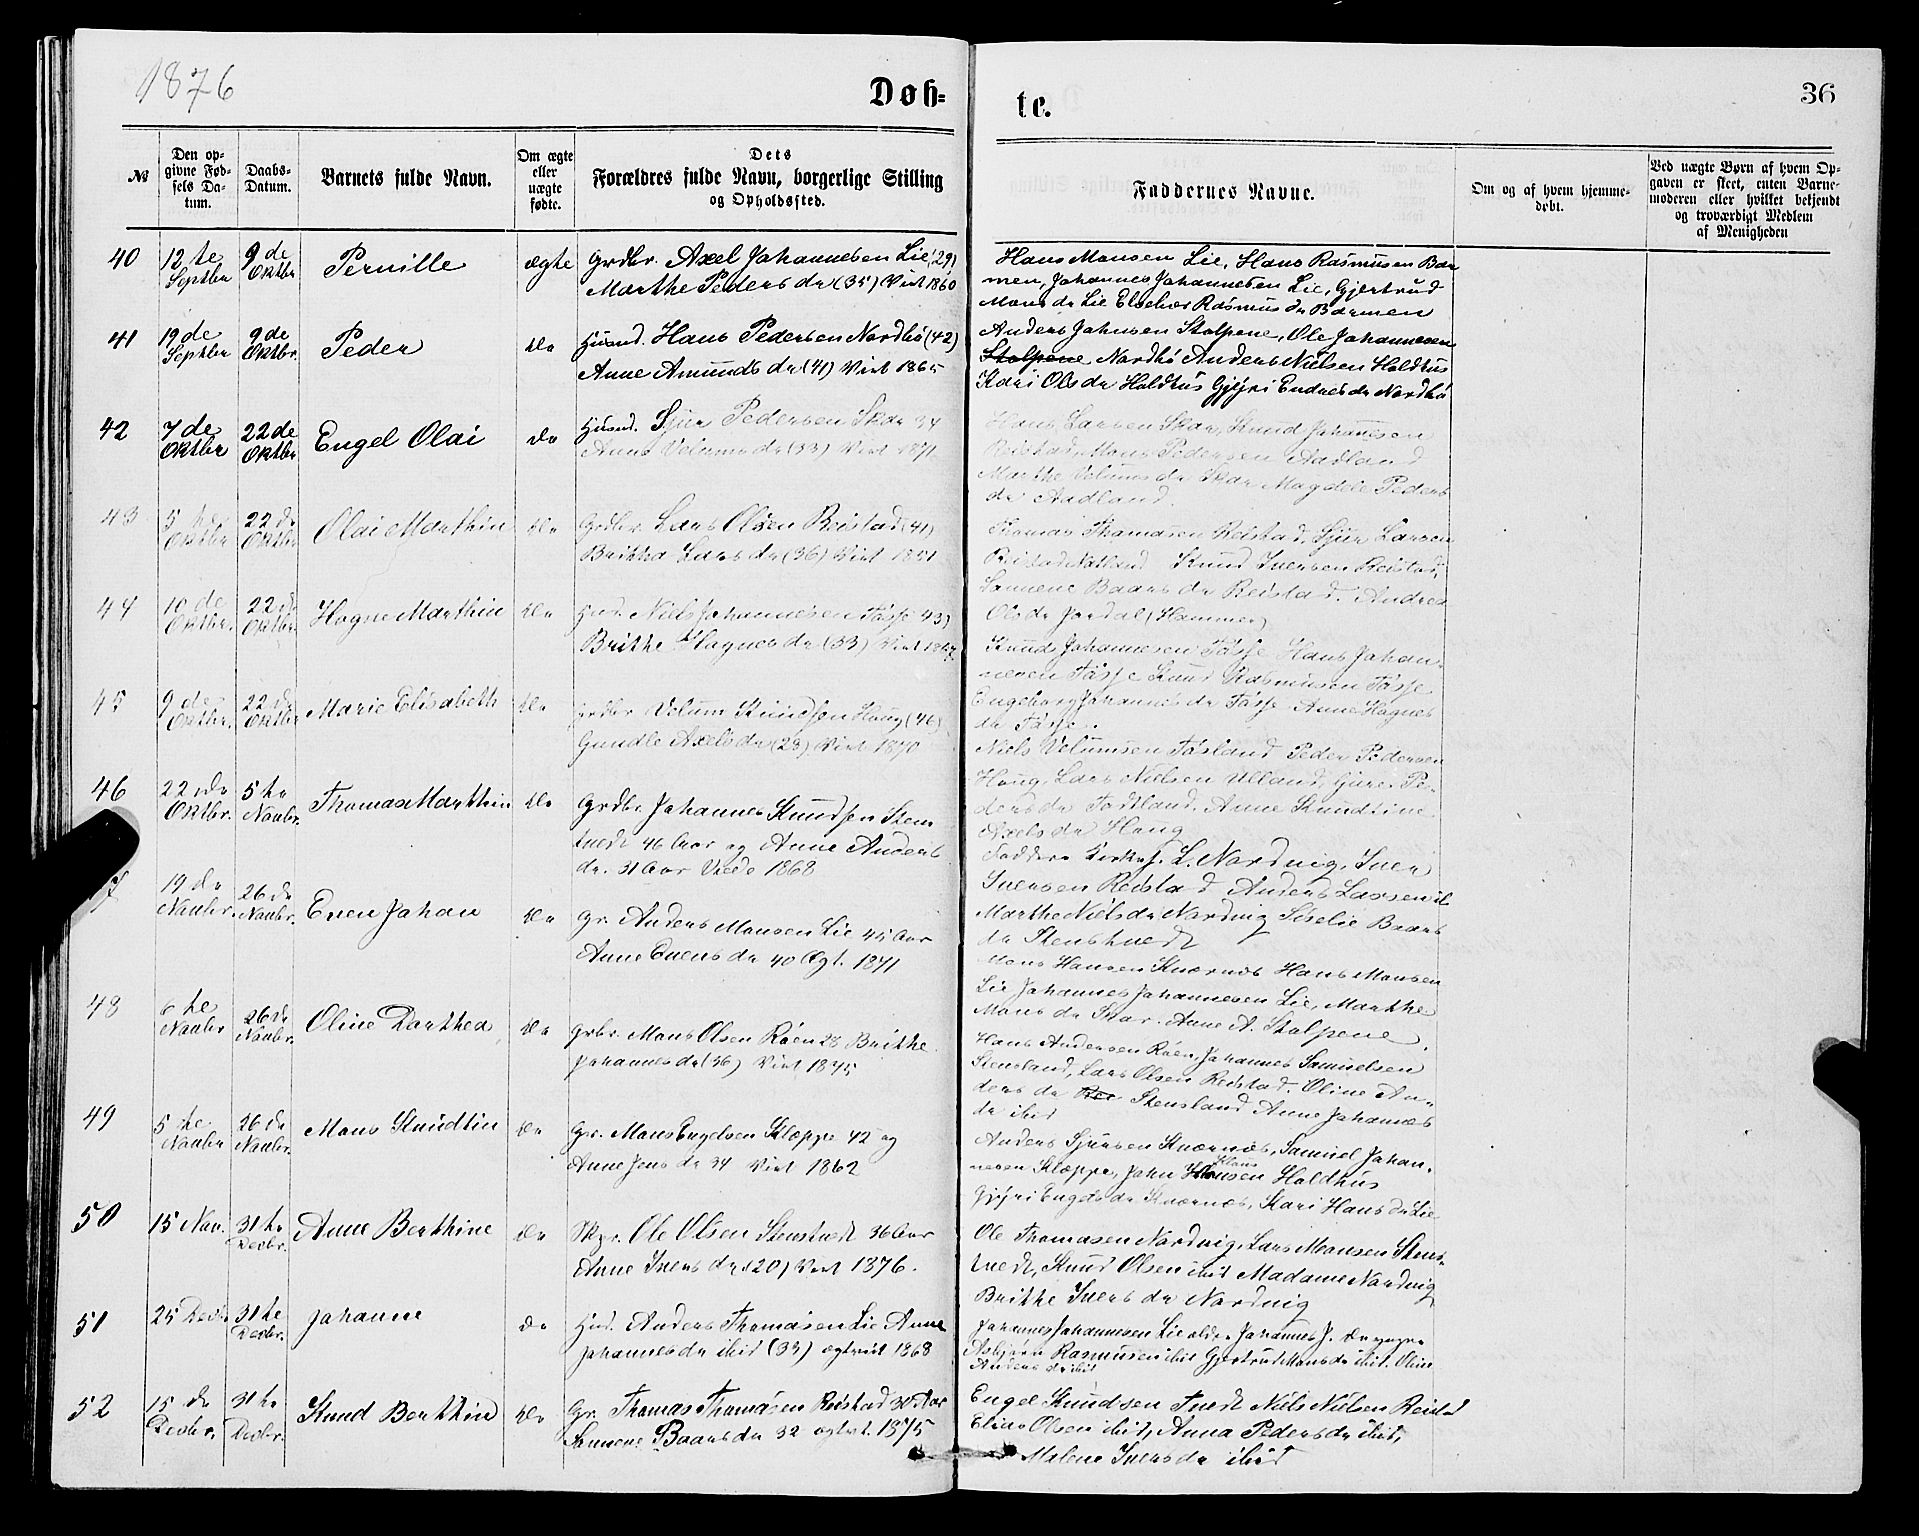 1876
Døb-
te.
36
№
Den op-
givne Fød-
sels Da-
tum.
Daabs-
Datum.
Barnets fulde Navn.
Om ægte
eller
uægte
fødte.
Dets
Forældres fulde Navn, borgerlige Stilling
og Opholdssted.
Faddernes Navne.
Om og af hvem hjemme-
døbt.
Ved uægte Børn af hvem Op-
gaven er skeet, enten Barne-
moderen eller hvilket bekjendt
og troværdigt Medlem
af Menigheden
40
12te
Septbr
9de
Oktbr
Pernille
ægte
Grdbr. Axel Johannesen Lie (29)
Marthe Peders dr (35) Viet 1860
Hans Monsen Lie, Hans Rasmusen Bar
men, Johannes Johannesen Lie, Gjertrud
Mons dr Lie Rasmus dr Barmen
41
19de
Septbr
9de
Oktbr.
Peder
do
Husmd. Hans Pedersen Nordbø (42)
Anne Amunds dr (41) Viet 1865
Anders Johnsen Stolpene, Ole Johannesen
Stolpene Nordbø Anders Nielsen Holdhus
Kari Ols dr Holdhus Gjøri Endres dr Nordbø
42
7de
Oktbr
22de
Oktbr
Engel Olai
do
Husmd. Sjur Pedersen Skar 34
Anne Velums dr (33) Viet 1871
Hans Larsen Skar, Knud Johannesen
Reistad, Mons Pedersen Aadland
Marthe Velums dr Skar Magdele Peders
dr Aadland.
43
5te
Oktbr
22de
Oktbr
Olai Marthin
do
Grdbr. Lars Olsen Reistad (41)
Brithe Lars dr (36) Viet 1851
Thomas Thomasen Reistad, Sjur Larsen
Reistad Natland Knud Iversen Reistad,
Synneve Baars dr Reistad. Andrea
Ols dr Jordal (Hammer)
44
10de
Oktbr.
22de
Oktbr.
Hogne Marthin
do
Hmd. Niels Johannesen Tøsse 43)
Brithe Hognes dr (33) Viet 1867.
Knud Johannesen Tøsse Hans Johan-
nesen Tøsse Knud Rasmusen Tøsse
Engeborg Johannes dr Tøsse Anne Hognes
dr Tøsse.
45
9de
Oktbr.
22de
Oktbr
Marie Elisabeth
do
Grdbr Velum Knudsen Houg (46)
Gundle Axels dr (29) Viet 1870
Niels Velumsen Peder Pedersen
Houg, Lars Nielsen Ulland, Guro Pe-
ders dr Anne Knudtine
Axels dr Houg
46
22de
Oktbr.
5te
Novbr.
Thomas Marthin
do
Grdbr Johannes Knudsen Stens
tvedt 46 Aar og Anne Anders
dr. 31 Aar Viede 1868
Faddere Kirks. L. Nordvig, Iver
Iversen Reistad Anders Larsen
Marthe Niels dr Nordvig Siselie Baars
dr Stenstvedt
47
19de
Novbr.
26de
Novbr.
Even Johan
do
Gr. Anders Monsen Lie 45 Aar
Anne Evens dr 40 Ægt. 1871
Mons Hansen Knarnes Hans Monsen
Lie Johannes Johannesen Lie, Marthe
Mons dr Skar. Anne A. Stolpene.
48
6te
Novbr
26de
Novbr.
Oline Dorthea
do
Grbr. Mons Olsen Røen 28 Brithe
Johannes dr (36) Viet 1875
Hans Andersen Røen, Johannes Samuelsen
Stensland, Lars Olsen Reistad. Oline An-
ders dr Stensland Anne Johannes
dr ibid
49
5te
Novbr
26de
Novbr.
Mons Knudtin
do
Gr. Mons Engelsen Kleppe 42 og
Anne Jens dr 34 Viet 1862
Anders Sjursen Knarnes, Samuel Johan-
nesen Kleppe, John Klausen Holdhus
Gjøri Engels dr Knarnes, Kari Hans dr Lie
50
15 Nov.
31te
Decbr.
Anne Berthine
do
Skgr. Ole Olsen Stenstvedt 36 Aar
Anne Ivers dr (20) Viet 1876.
Ole Thomasen Nordvig, Lars Monsen Stens-
tvedt, Knud Olsen ibid Madame Nordvig
Brithe Ivers dr Nordvig
51
25 Decbr
31te
Decbr.
Johanne
do
Hmd. Anders Thomasen Lie Anne
Johannes dr ibid (33) ægtviet 1868
Johannes Johannesen Lie eldre Johannes J. do yngre
Asbjørn Rasmusen ibid Gjertrud Mons dr ibid. Oline
Anders dr ibid
52
15de
Decbr.
31te
Decbr.
Knud Berthin
do
Gr. Thomas Thomasen Reistad 30 Aar
Synneve Baars dr 32 ægtv. 1875
Engel Knudsen Tvedt Niels Nielsen Reistad
Elias Olsen ibid, Anna Peders dr ibid,
Malene Ivers dr ibid